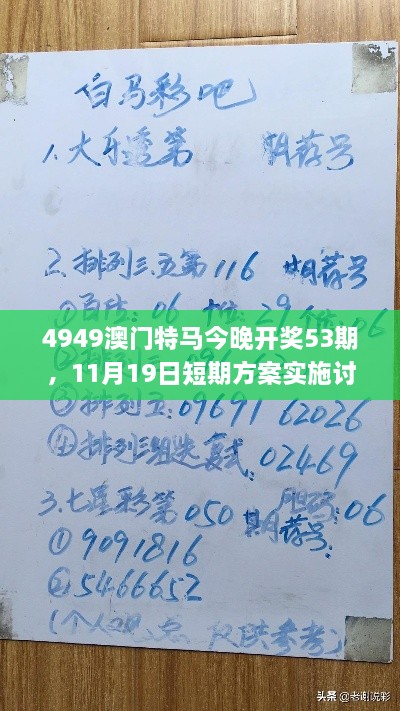 白马彩吧
1、大乐透第 期荐号
2、排列三.五第116期荐号
①百位:06 十位:29 个位:06
4949澳门特马今晚开奖53期
，11月19日短期方案实施讨
③排列五:09691 62026
④排列三组选复式:02469
3.七星彩第050期荐号:
胆码:06
①9091816
②5466652
(个人观点 仅供参考)
头条 @老谢说彩